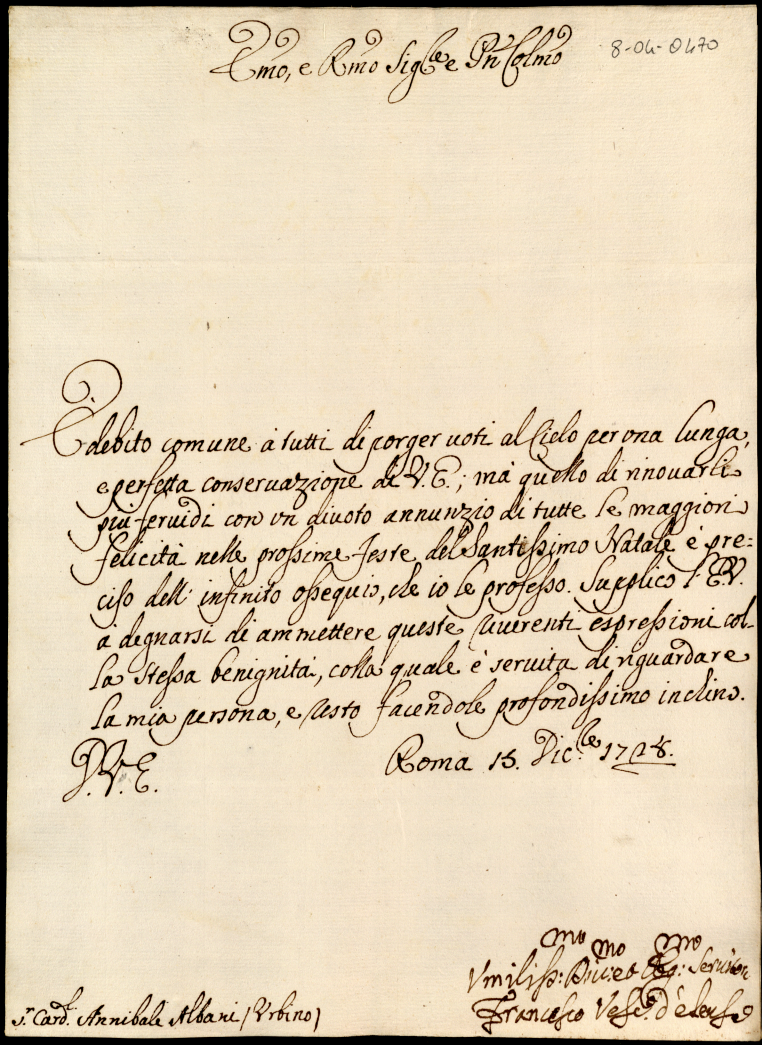 Emo, e Rmo Sig.re e Pn Colmo
8-04-0470
È debito comune à tutti di porger voti al Cielo per una lunga,
e perfetta conservazione di V.E.; mà quello di rinovarli
più fervidi con un divoto annunzio di tutte le maggiori
felicità nelle prossime feste del Santissimo Natale è pre=
ciso dell' infinito ossequio, che io le professo. Supplico l' E.V.
à degnarsi di ammettere queste riverenti espressioni col-
la stessa benignità, colla quale è servita di riguardare
la mia persona, e resto facendole profondissimo inchino.
D.V.E. Roma 15. Dic.re
Umiliss:mo Div:mo ed Obg:mo Servitor
Francesco Vesc.o
S.r Card.l Annibale Albani (Urbino)